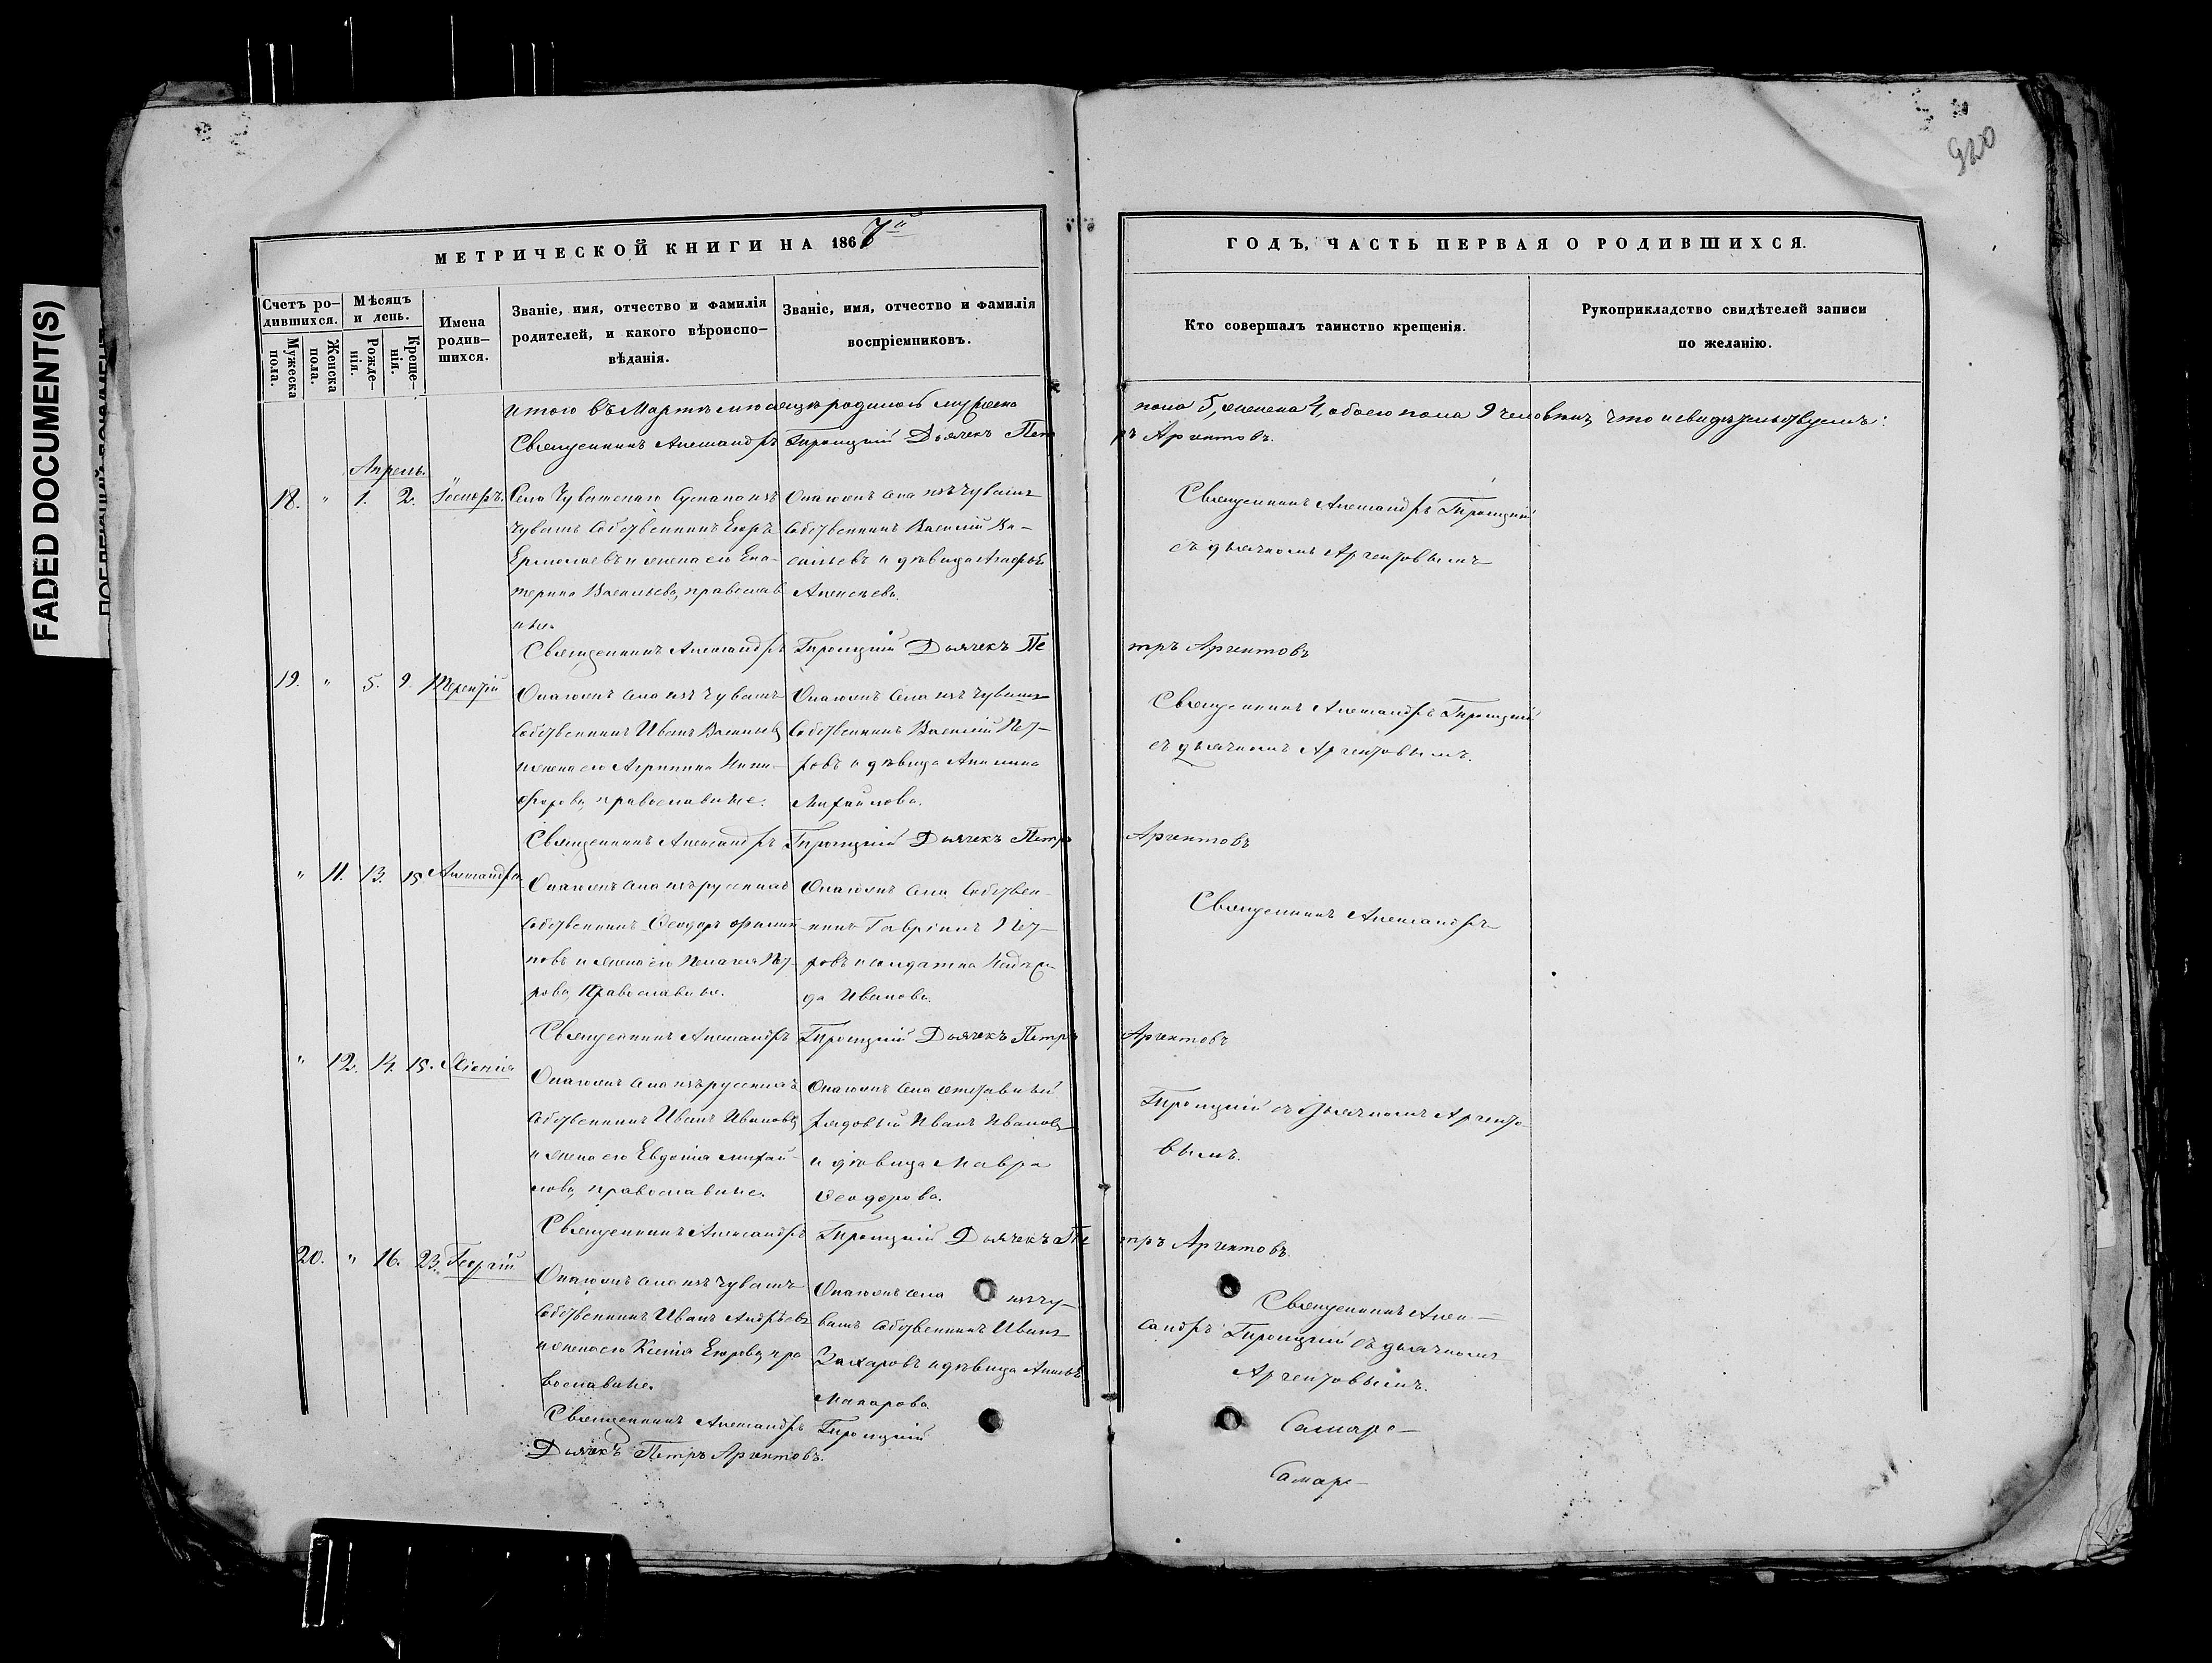 920
FADED DOCUMENT(S)
МЕТРИЧЕСКОЙ КНИГИ НА 1867й
ГОДЪ, ЧАСТЬ ПЕРВАЯ О РОДИВШИХСЯ.
Счетъ ро-
дившихся.
Мужеска
пола.
Женска
пола.
Мѣсяцъ
и день.
Рожде-
нія.
Креще-
нія.
Имена
родив-
шихся.
Званіе, имя, отчество и фамилія
родителей, и какого вѣроиспо-
вѣданія.
Званіе, имя, отчество и фамилія
воспріемниковъ.
Кто совершалъ таинство крещенія.
Рукоприкладство свидѣтелей записи
по желанію.
Итого въ Мартѣ мѣсяцѣ родилось мужеска
пола 5, женска 4, обоего пола 9 человѣкъ, что и свидѣтельствуемъ:
Священникъ Александръ Троицкій Дьячекъ Пет
ръ Аргентовъ.
Апрель.
18. " 1. 2.
Села Чувашскаго изъ
чувашъ собственникъ Егоръ
Ермолаевъ и жена его Ека-
терина Васильева, православ
ные.
Означен села изъ чувашъ
собственникъ Василій Ва-
сильевъ и дѣвица
Алексѣева.
Священникъ Александръ Троицкій
съ дьячкомъ Аргентовымъ
Священникъ Александръ Троицкій Дьячекъ Пе
тръ Аргентовъ
19. " 5. 9. Терентій
села изъ чувашъ
собственникъ Иванъ Васильевъ
и жена его Агрипина Ники-
форова, православные.
села изъ чувашъ
собственникъ Василій Пет-
ровъ и дѣвица Акилина
Михайлова.
Священникъ Александръ Троицкій
съ дьячкомъ Аргентовымъ.
Священникъ Александръ Троицкій Дьячекъ Петръ
Аргентовъ
" 11. 13. 15. Александра
села изъ русскихъ
собственникъ Ѳеодоръ Филип-
повъ и жена его Пелагея Пет-
рова, Православные.
села собствен-
никъ Гавріилъ Пет-
ровъ и солдатка Надеж-
да Иванова.
Священникъ Александръ
Священникъ Александръ Троицкій Дьячекъ Петръ
Аргентовъ
" 12. 14. 15.
села изъ русскихъ
собственникъ Иванъ Ивановъ
и жена его Евдокія Михай-
лова, православные.
села отставный
рядовый Иванъ Ивановъ
и дѣвица Мавра
Ѳеодорова.
Троицкій съ дьячкомъ Аргенто-
вымъ.
Священникъ Александръ Троицкій Дьячекъ Пе
тръ Аргентовъ.
20. " 16. 23. Георгій
села изъ чувашъ
собственникъ Иванъ Андрѣевъ
и жена его Ксенія Егорова, пра
вославные.
села изъ чу-
вашъ собственникъ Иванъ
Захаровъ и дѣвица
Макарова.
Священникъ Алек-
сандръ Троицкій съ дьячкомъ
Аргентовымъ.
Священникъ Александръ Троицкій
Дьячекъ Петръ Аргентовъ.